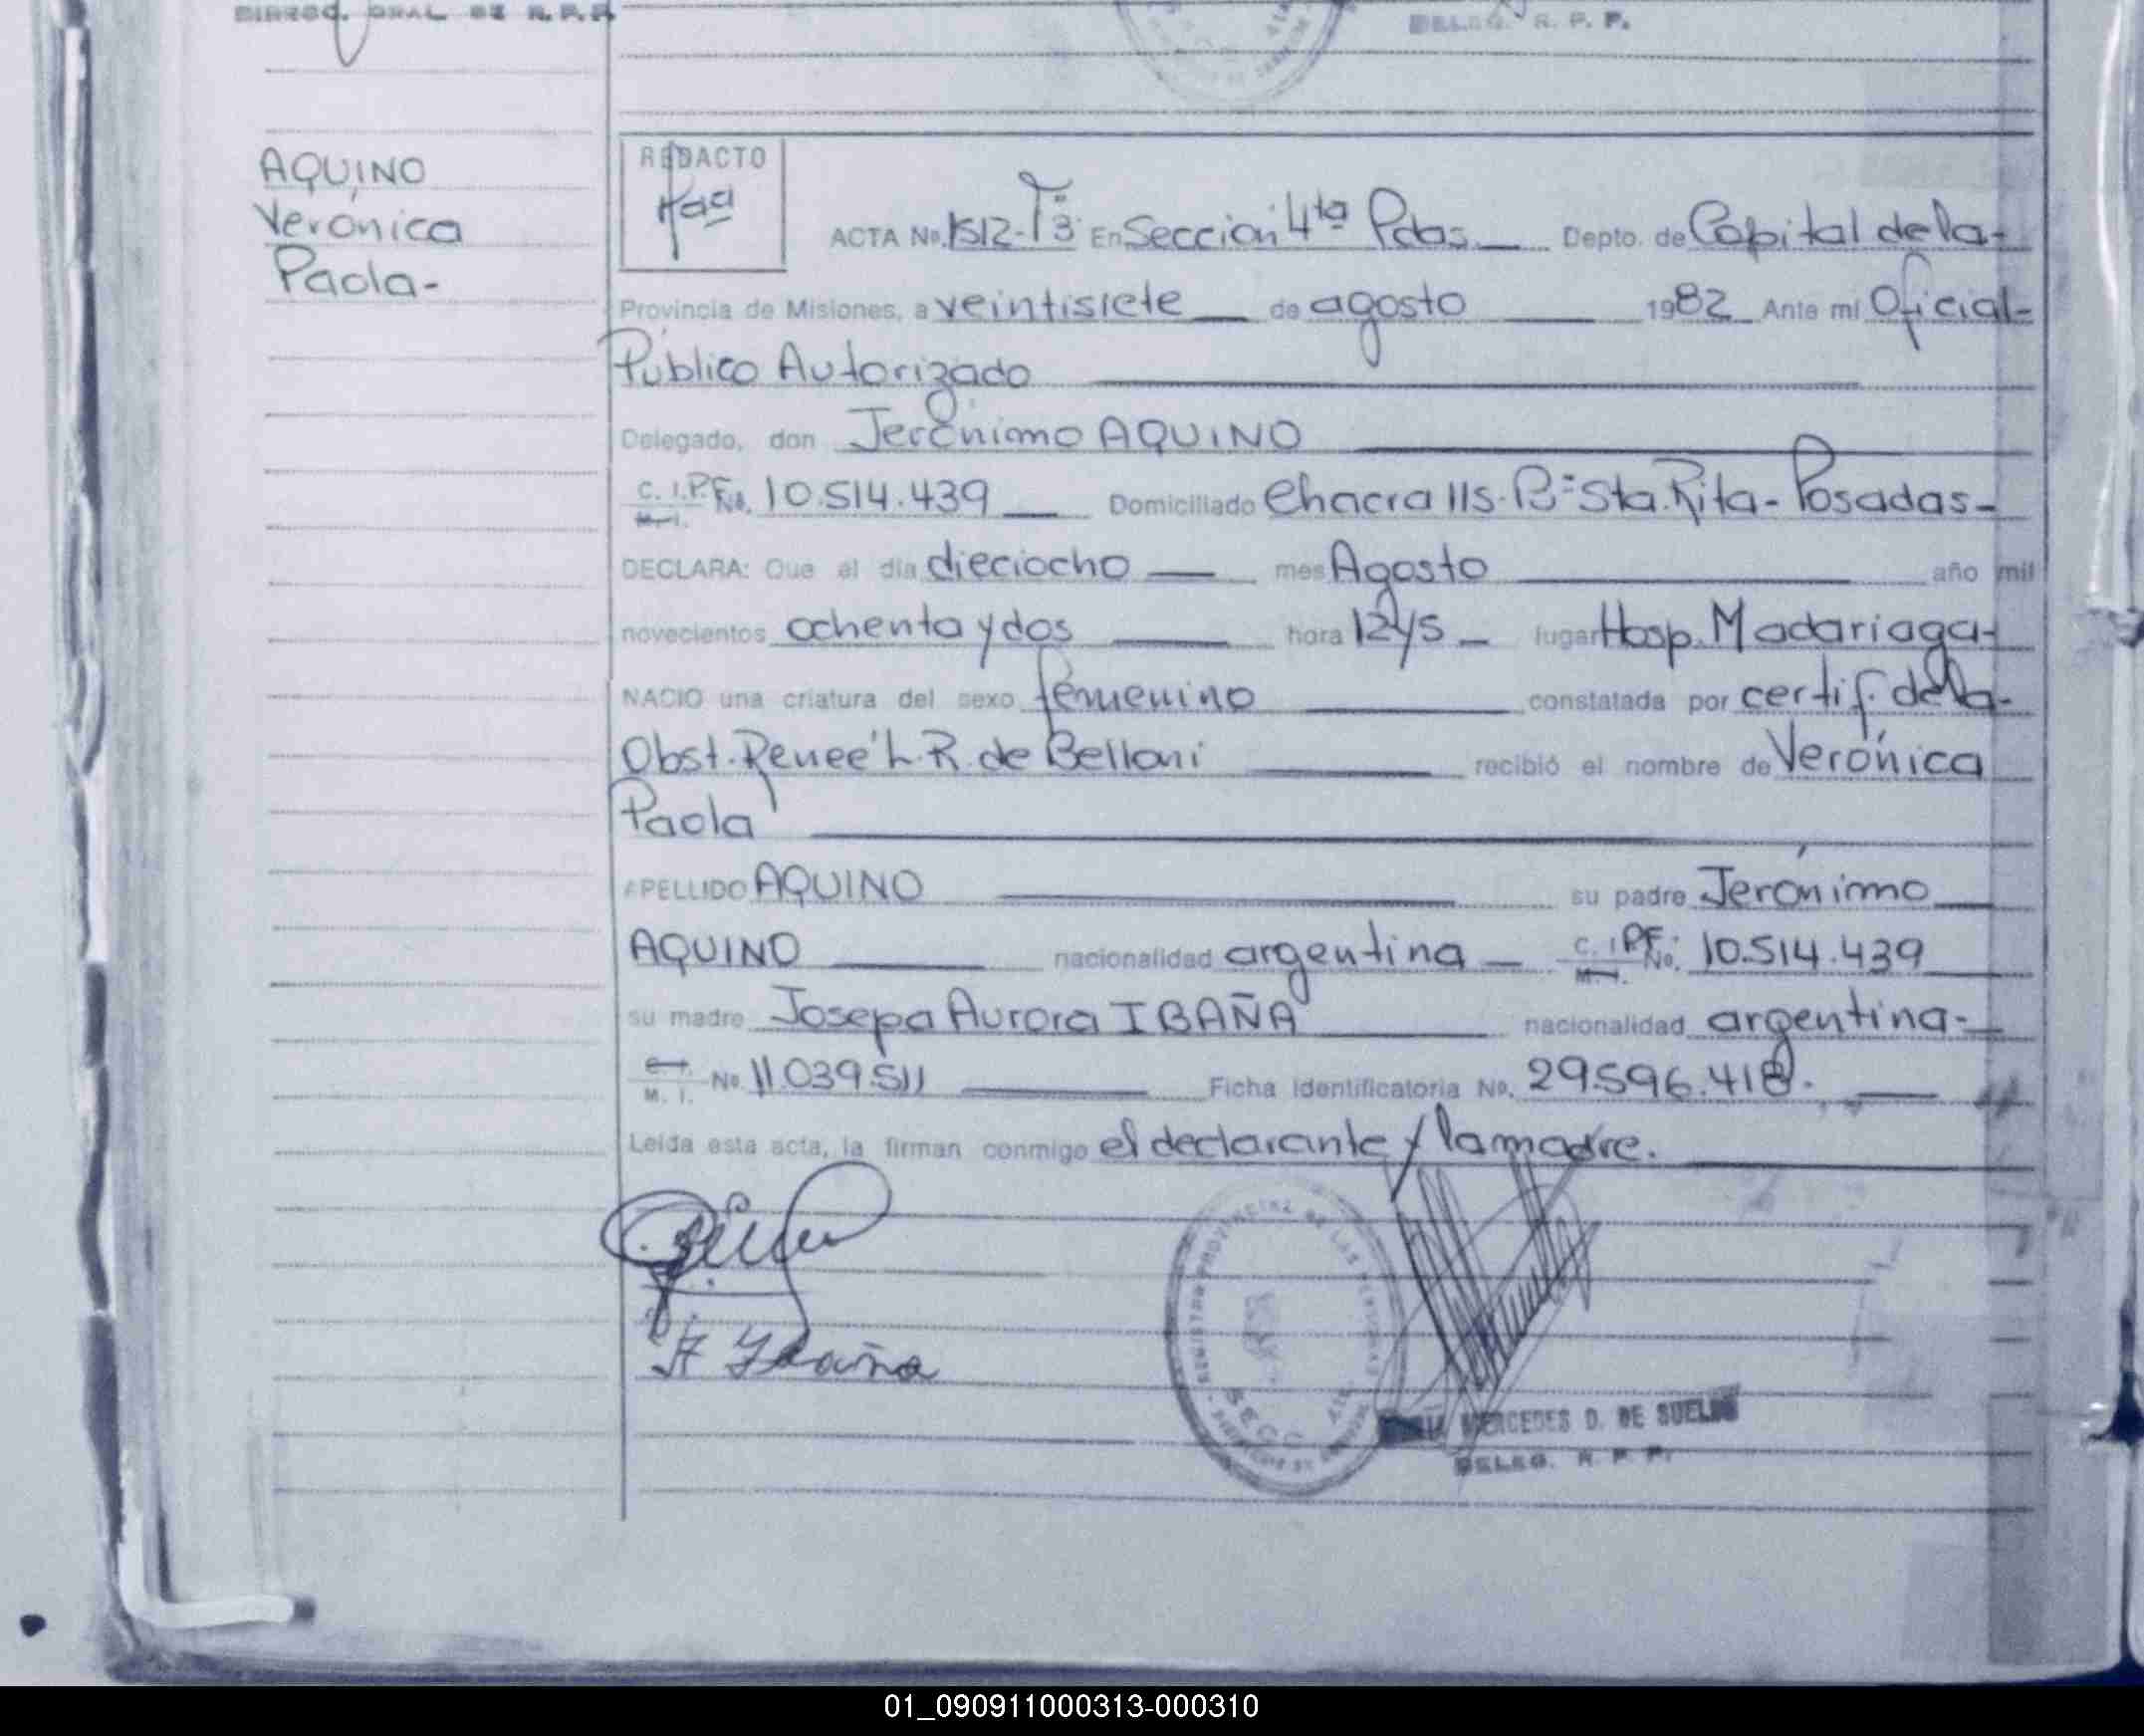 DIREC. GRAL DE R.P.P.
DELEG. R. P. P.
AQUINO
Verónica
Paola-
REDACTO
ACTA No. 1512-Tº3 En Sección 4ta Pdas. Depto. de Capital de la-
Provincia de Misiones, a veintisiete de agosto 1982 Ante mi Oficial-
Público Autorizado
Delegado, don Jerónimo AQUINO
C. I.P.F. No. 10.514.439 Domiciliado Chacra 115-Bº Sta. Rita-Posadas-
M. I.
DECLARA: Que el día dieciocho mes Agosto año mil
novecientos ochenta y dos hora 12y5 lugar Hosp. Madariaga-
NACIO una criatura del sexo femenino constatada por certif. de la-
Obst. Reneé L. R. de Bellani recibió el nombre de Verónica
Paola
APELLIDO AQUINO su padre Jerónimo
AQUINO nacionalidad argentina C. I.P.F. No. 10.514.439
M. I.
su madre Josepa Aurora IBAÑA nacionalidad argentina-
M. I. No. 11.039.511 Ficha Identificatoria No. 29.596.418.
Leída esta acta, la firman conmigo el declarante y la madre.
MERCEDES D. DE
DELEG. R. P. P.
01_090911000313-000310